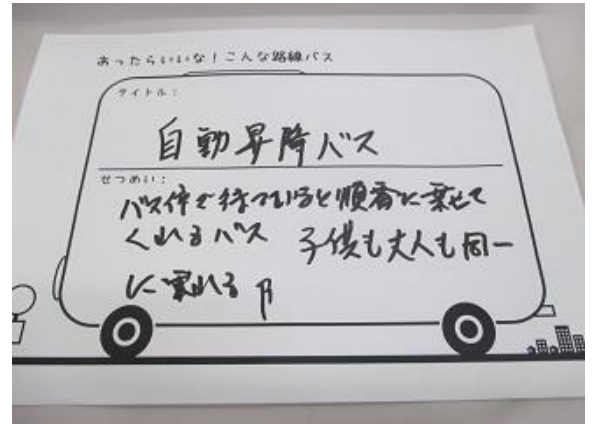 あったらいいな！こんな路線バス
タイトル：
自動昇降バス
せつめい：
バス停で待っていると順番に乗せて
くれるバス 子供も大人も同一
に乗れる